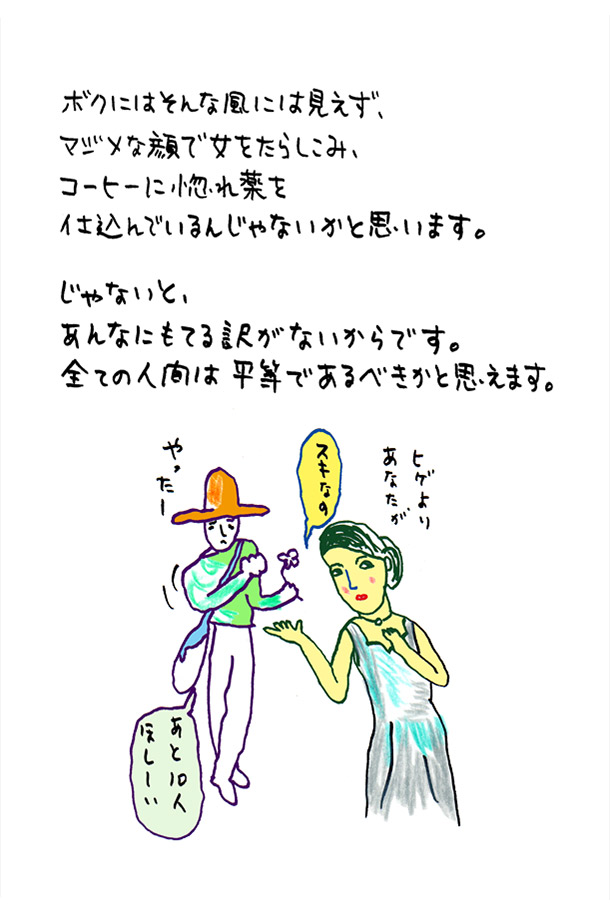 ボクにはそんな風には見えず、
マジメな顔で女をたらしこみ、
コーヒーに惚れ薬を
仕込んでいるんじゃないかと思います。
じゃないと、
あんなにもてる訳がないからです。
全ての人間は平等であるべきかと思えます。
ヒゲより
あなたが
スキなの
やったー
あと10人
ほしーい